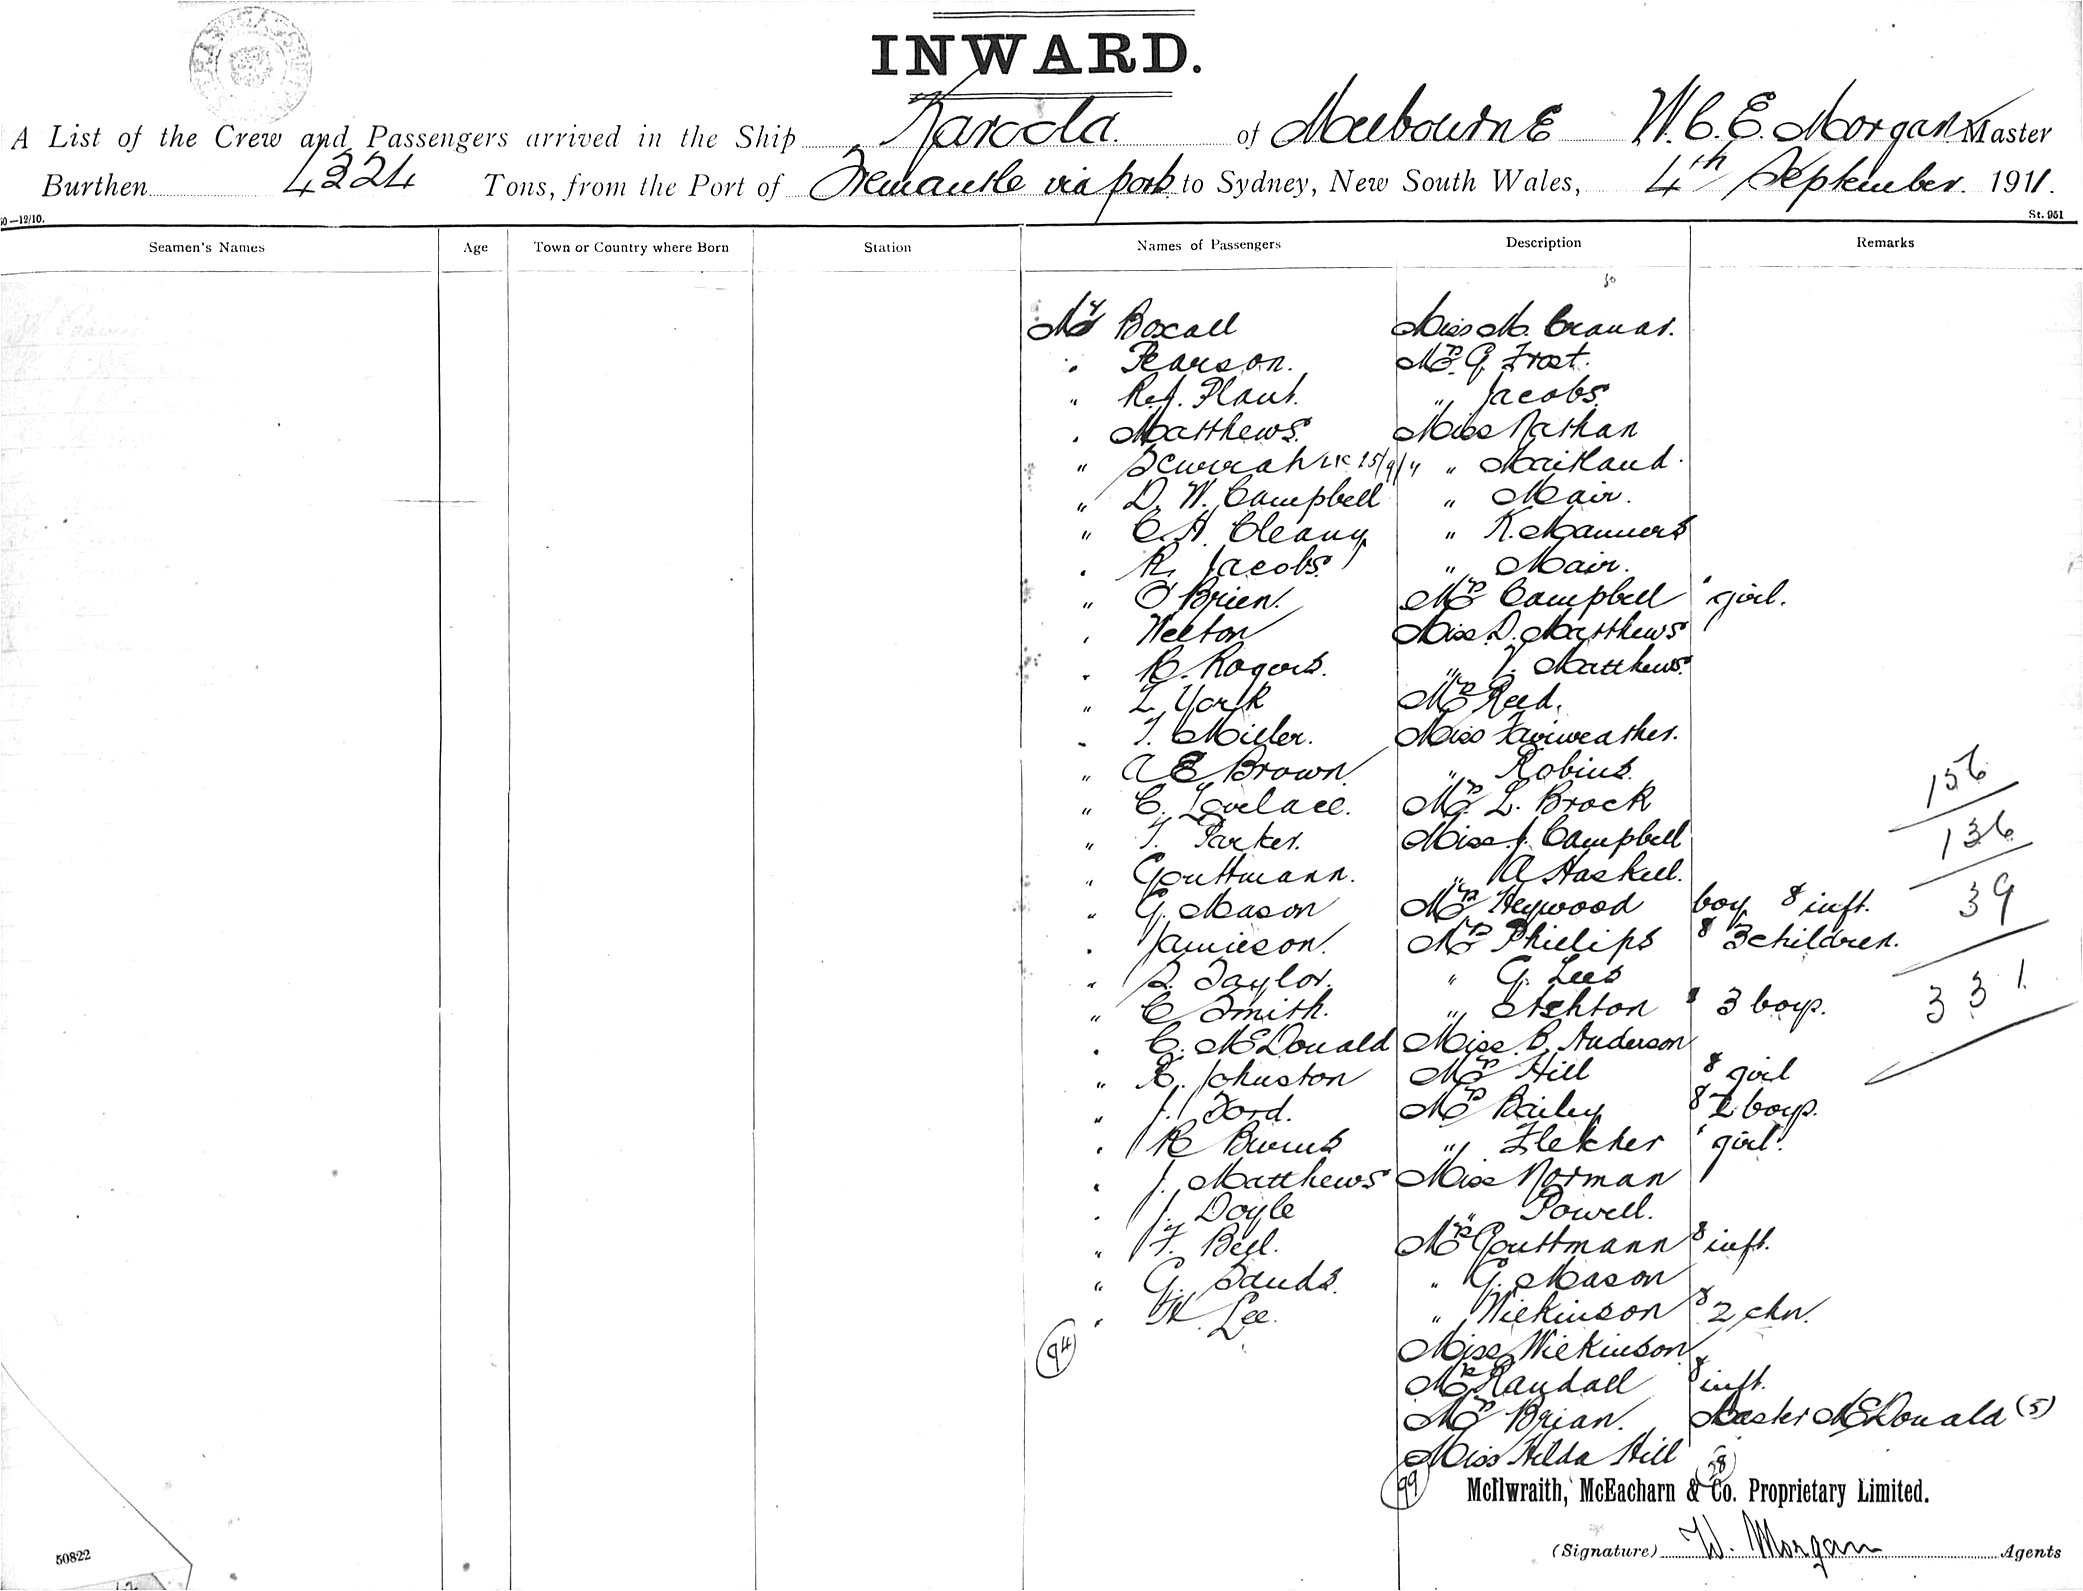 INWARD.
A List of the Crew and Passengers arrived in the Ship Karoola. of Melbourne W. C. E. Morgan Master
Burthen 4324 Tons, from the Port of Fremantle via ports to Sydney, New South Wales, 4th September. 1911.
50—12/10. St. 951
Seamen's Names Age Town or Country where Born Station Names of Passengers Description Remarks
Mr Boxall Miss M.
" Pearson. Mrs G. Frost.
" R. J. Plant. " Jacobs.
" Matthews. Miss Nathan
" Scurrah " Maitland.
" D. W. Campbell " Mair.
" C. H. Cleany " K. Manners
" R. Jacobs. " Mair.
" O'Brien. Mrs Campbell & girl.
" Welton Miss D. Matthews
" R. Rogers. " V. Matthews.
" L York Mrs Reed.
" T. Miller. Miss Fairweather.
" A E Brown. " Robins.
" C. Lovelace. Mrs L. Brock
156
" T. Parker. Miss J. Campbell
136
" Gouttmann. " A Haskell.
" G. Mason Mrs Heywood boy & inft.
39
" Jamieson. Mrs Phillips & 3 children.
" S. Taylor. " G. Lees
" C Smith. " Ashton & 3 boys.
331
" C. McDonald Miss B. Anderson
" R. Johnston Mrs Hill & girl
" J. Ford. Mrs Bailey & 2 boys.
" R Bivins " Fletcher & girl.
" J. Matthews Miss Norman
" J. Doyle " Powell.
" F. Bell. Mrs Gouttmann & inft.
" G. Sands. " G. Mason
" H. Lee. " Wilkinson & 2 chn.
94
Miss Wilkinson
Mrs Randall & inft.
Mrs Brian. Master McDonald (5)
Miss Hilda Hill
99 28
McIlwraith, McEacharn & Co. Proprietary Limited.
(Signature) W. Morgan Agents
50822